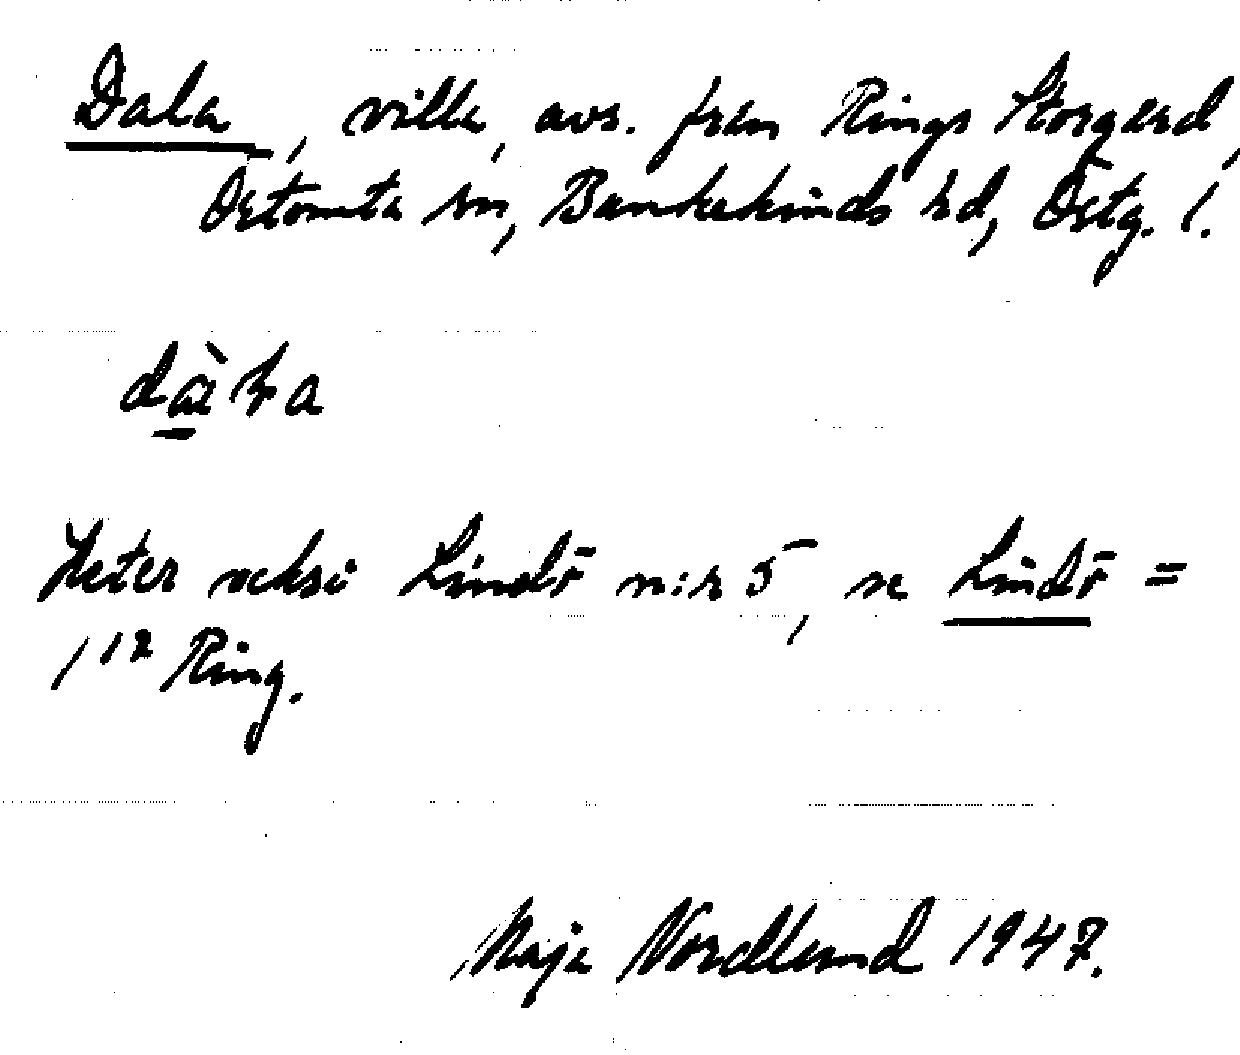 Dala, villa, avs. från Rings Storgård,
Östomta sn, Bankekinds hd, Östg. l.
dàƚa
Heter också Lindö n:r 5, se Lindö =
1¹² Ring.
Maja Nordlund 1947.